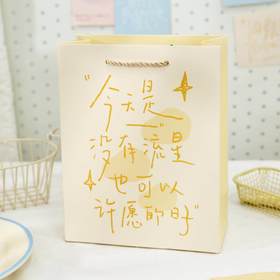 "今天是
没有流星
也可以
许愿的日子"